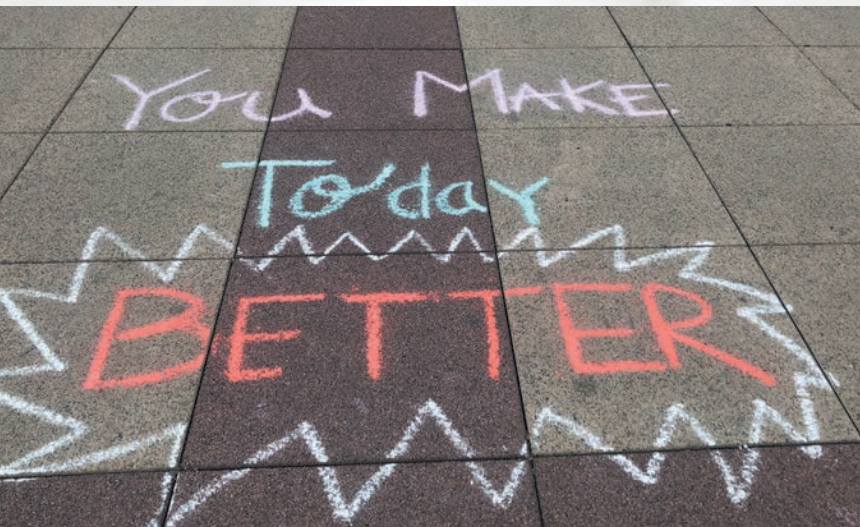 You MAKE
Today
BETTER